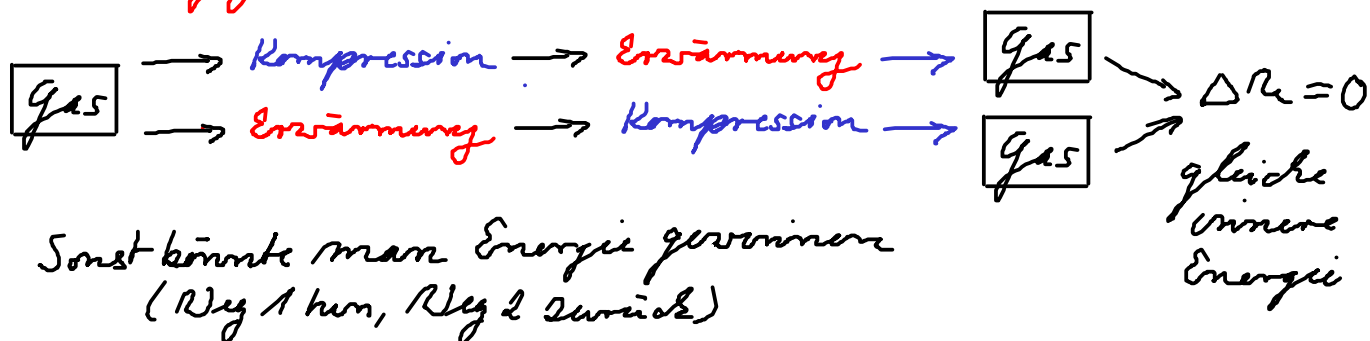 Gas → Kompression → Erwärmung → Gas
Gas → Erwärmung → Kompression → Gas
ΔU = 0
gleiche
innere
Energie
Sonst könnte man Energie gewinnen
(Weg 1 hin, Weg 2 zurück)